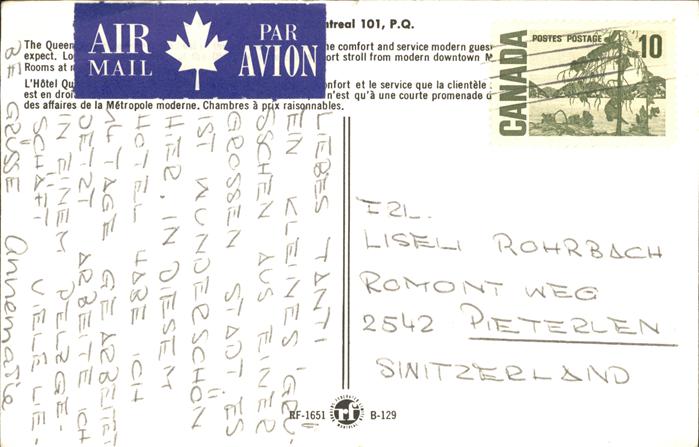 Montreal 101, P.Q.
The Queen
the comfort and service modern guest
expect. Lo
ort stroll from modern downtown M
Rooms at
L'Hôtel Qu
onfort et le service que la clientèle
est en droi
n'est qu'à une courte promenade d
des affaires de la Métropole moderne. Chambres à prix raisonnables.
AIR
MAIL
PAR
AVION
POSTES POSTAGE
10
CANADA
LIEBES TANTI
EIN KLEINES GRÜ-
SSCHEN AUS EINER
GROSSEN STADT ES
IST WUNDERSCHÖN
HIER. IN DIESEM
HOTEL HABE ICH
4 TAGE GEARBEITET
JETZT ARBEITE ICH
IN EINEM PELZGE-
SCHÄFT VIELE LIE-
BE GRÜSSE Annemarie
FRL.
LISELI ROHRBACH
ROMONT WEG
2542 PIETERLEN
SWITZERLAND
RF-1651 B-129